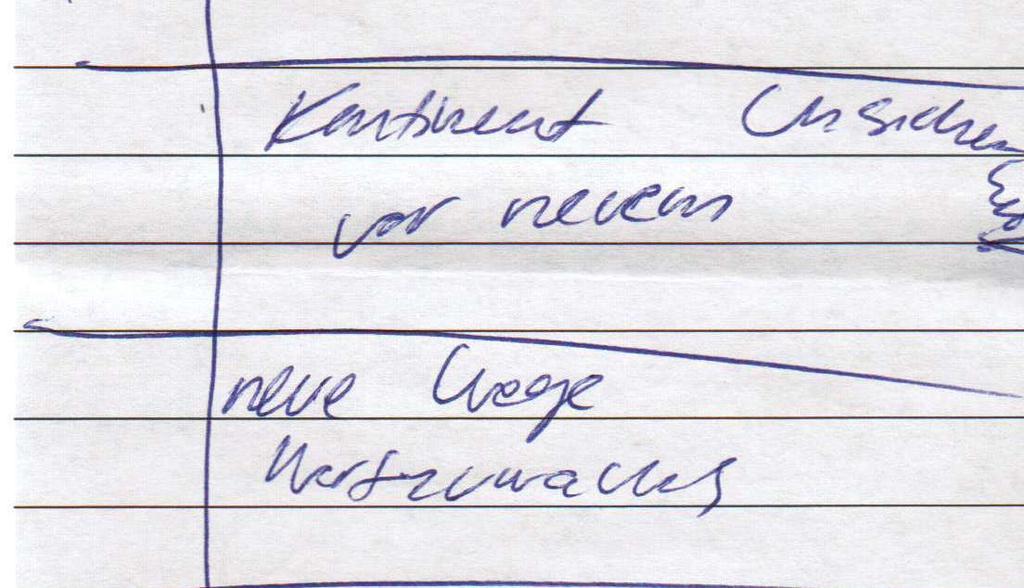 Kontinent Unsicher
vor neuem
neue Wege
Wertzuwachs